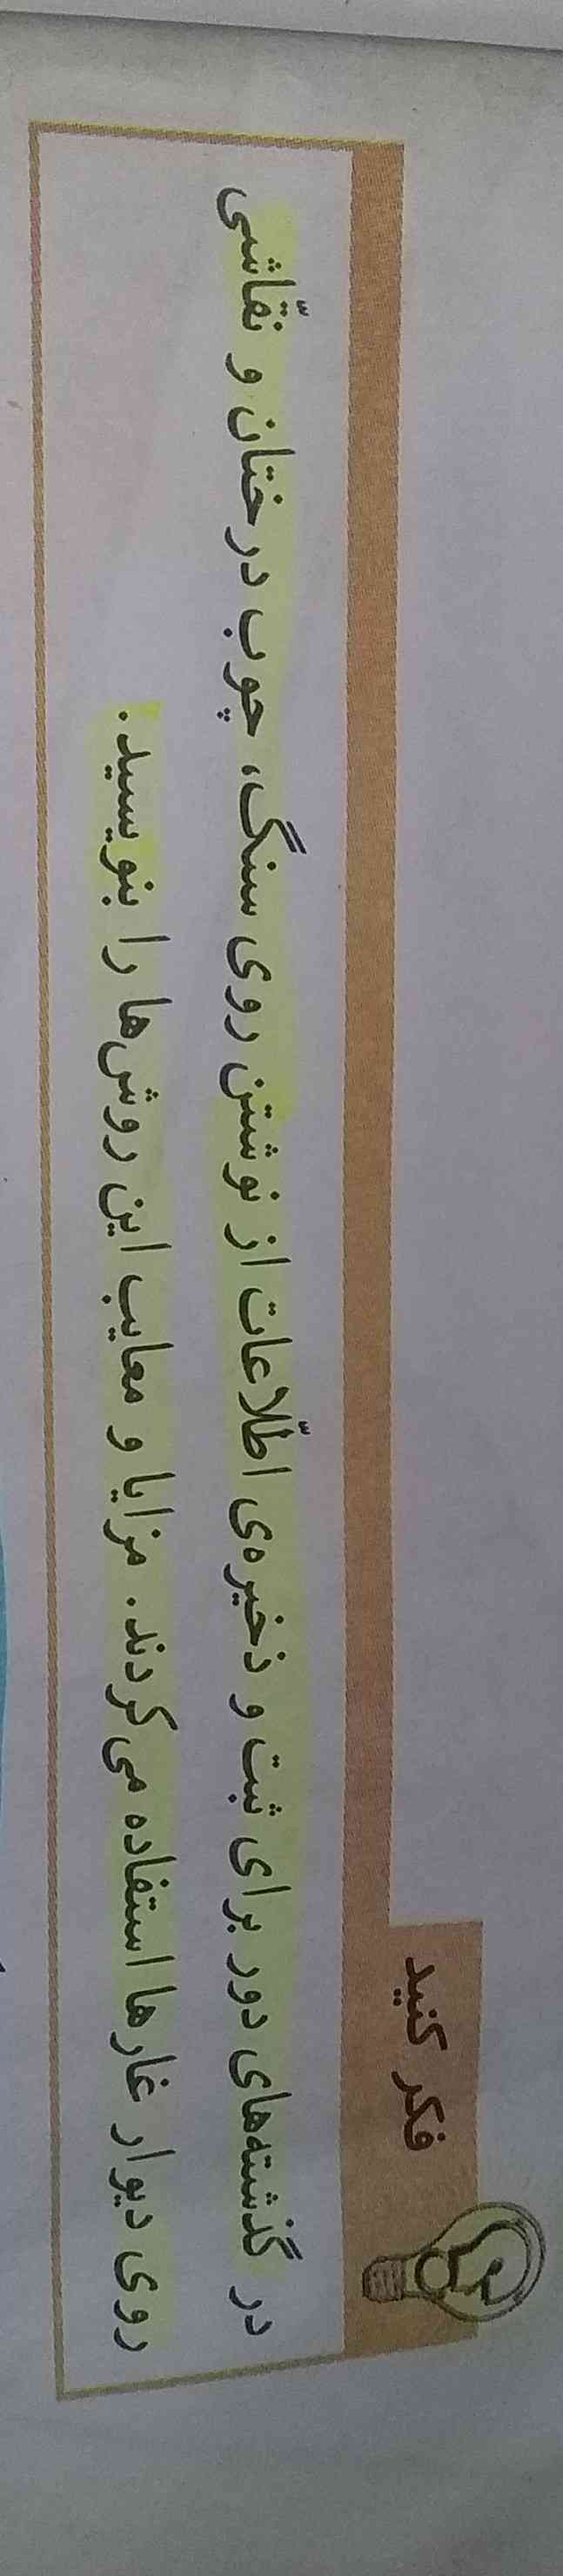 فکر کنید
در گذشته‌های دور برای ثبت و ذخیره‌ی اطّلاعات از نوشتن روی سنگ، چوب درختان و نقّاشی
روی دیوار غارها استفاده می‌کردند. مزایا و معایب این روش‌ها را بنویسید.